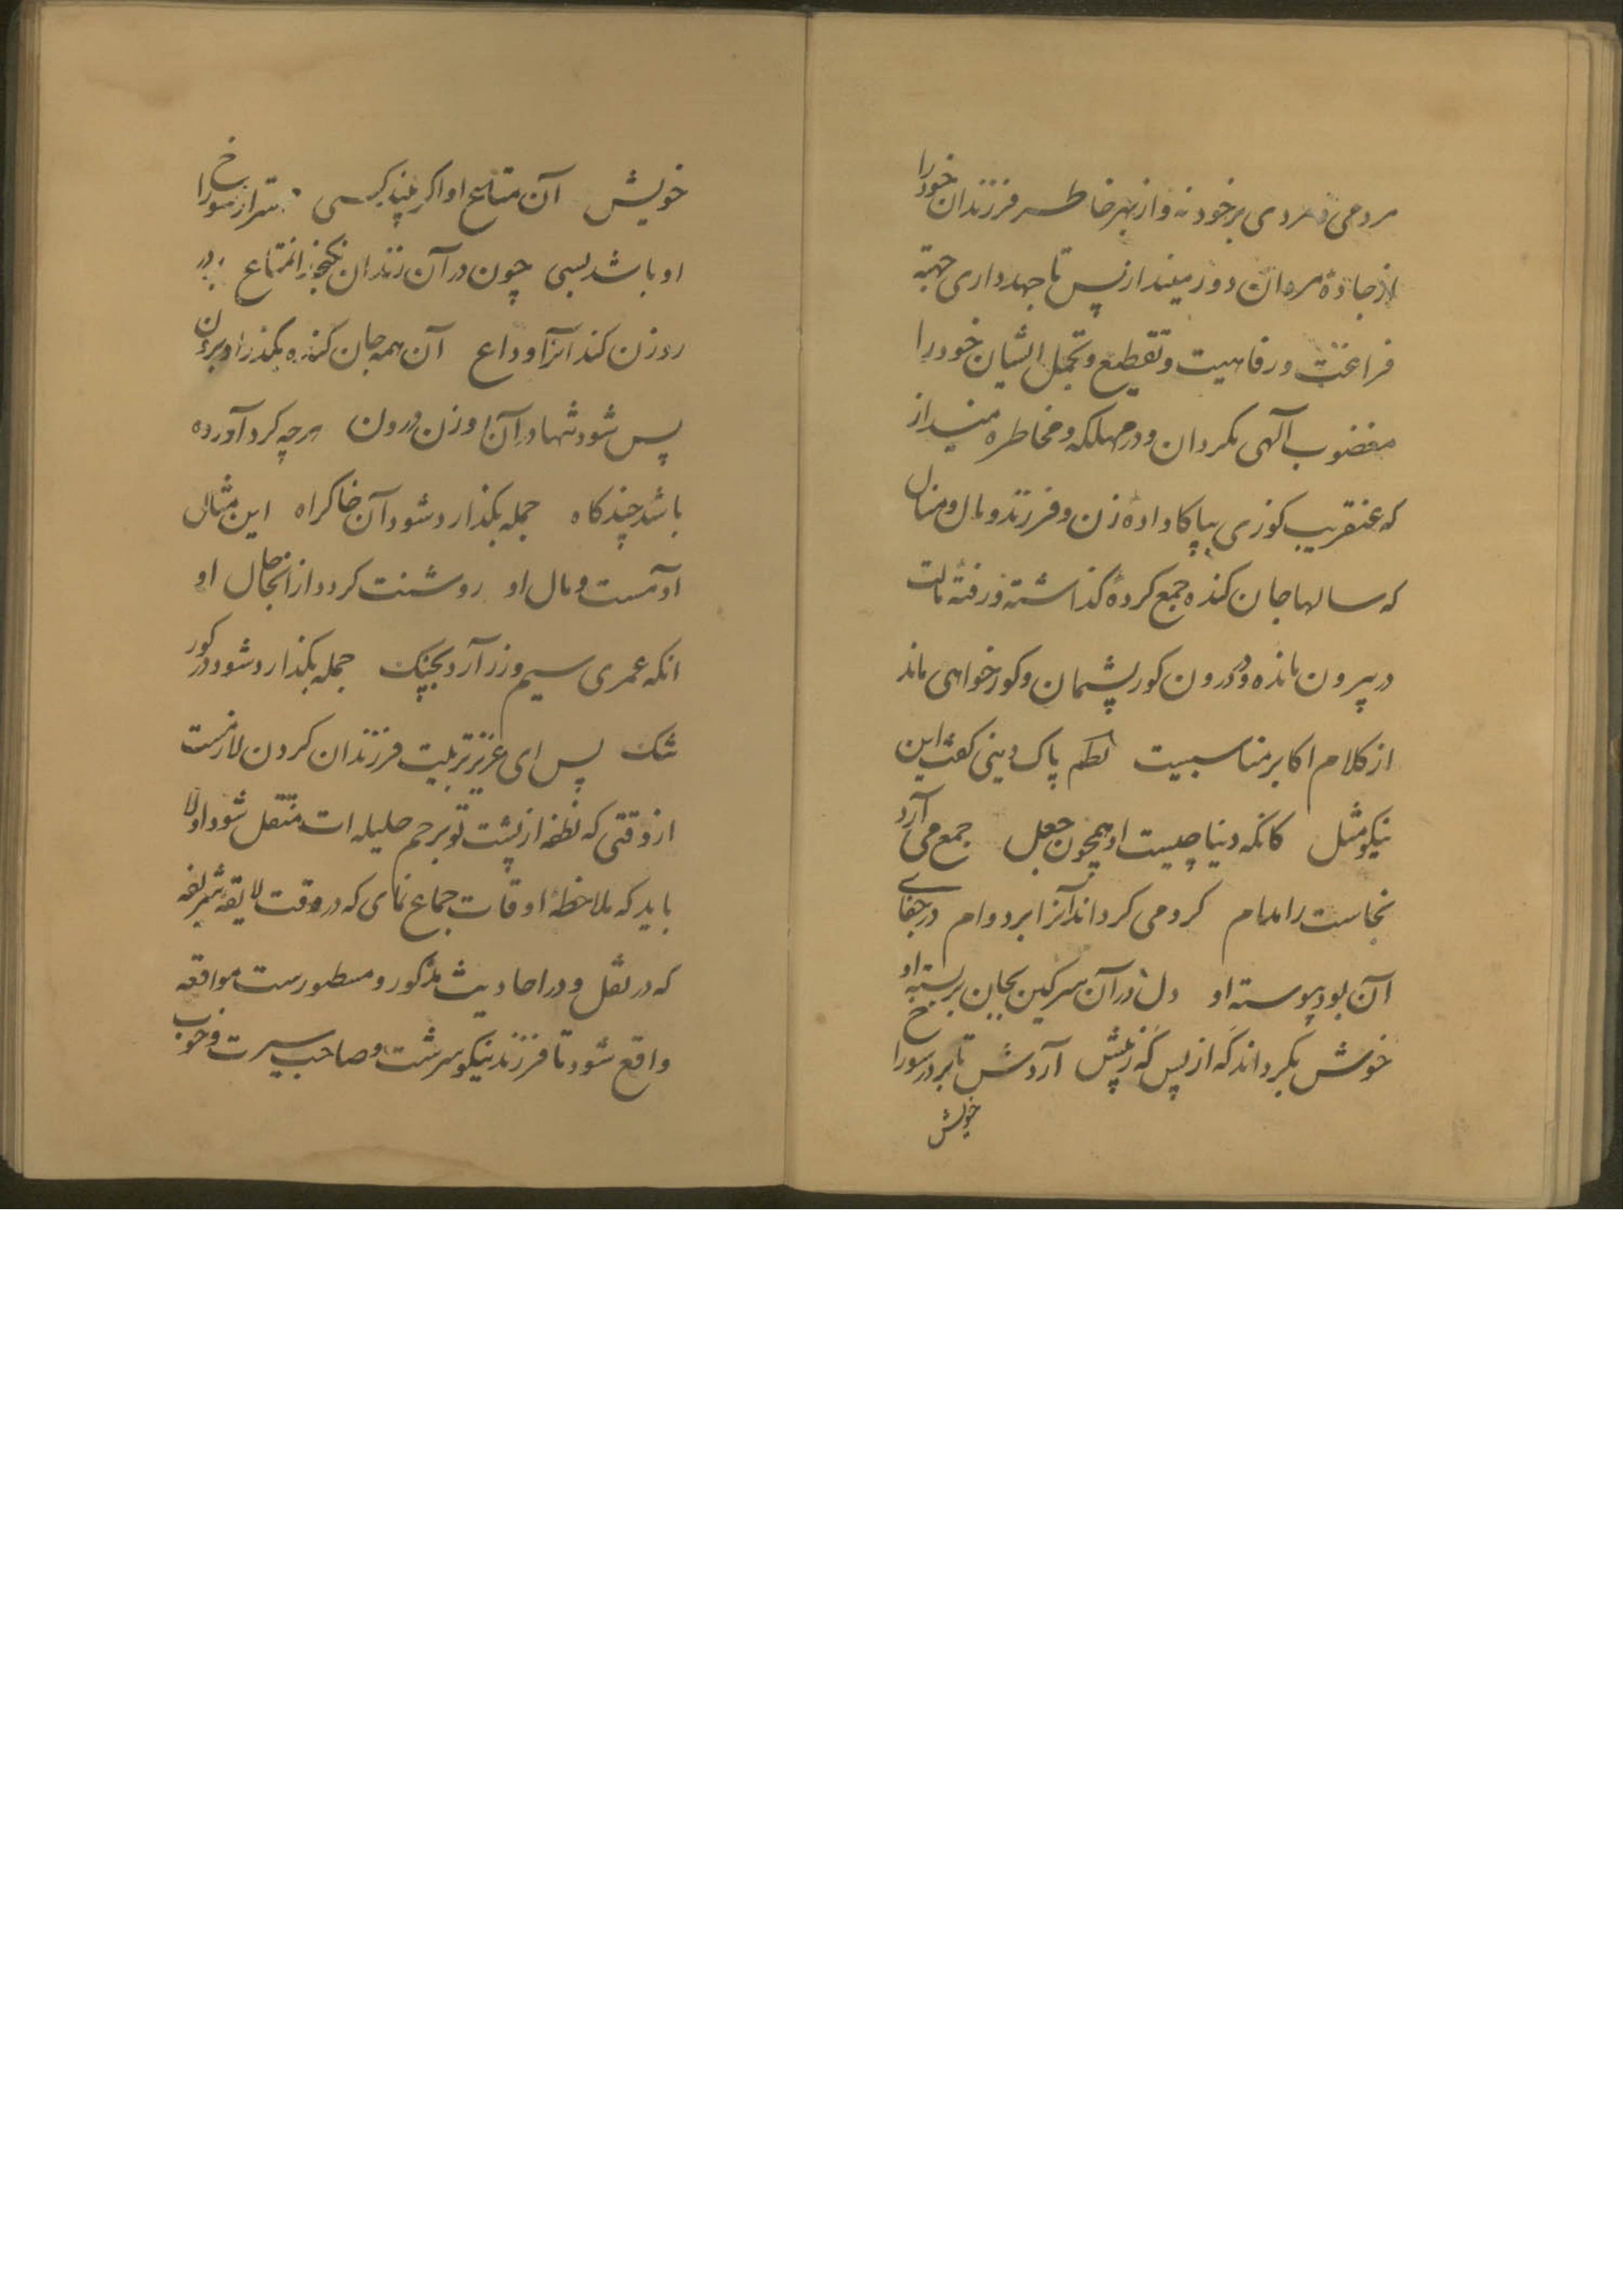 مردمی و مردی برخود نه و از بهر خاطر فرزندان خود را
از جادهٔ مردان دور مینداز پس تا جهد داری جهتة
فراغت و رفاهیت و تقطیع و تجمل ایشان خود را
مغضوب آلهی مکردان و در مهلکه و مخاطره مینداز
که عنقریب کوزی بپا کاواده زن و فرزند و مال و منال
که سالها جان کنده جمع کردهٔ کذاشته و رفتهٔ مالت
در بیرون مانده و در درون کور پشیمان و کور خواهی ماند
از کلام اکابر مناسبیت نظم پاک دینی کفت این
نیکو مثل کانکه دنیا چیست او همچون جعل جمع می آرد
نجاست را مدام کرد می کرداند آنرا بر دوام در جفای
آن بود پیوسته او دل در آن سرکین بجان بر بسته او
خوش بکرداند که از پس که ز پیش آردش تا بر در سوراخ
خویش
خویش آن متاع او اکر بیند کسی مهتر از سوراخ
او باشد بسی چون در آن زندان نکنجد آن متاع بر در
روزن کند آنرا وداع آن همه جان کنده بکذارد برون
پس شود تنها در آن روزن درون هرچه کرد آورده
باشد چند کاه جمله بکذارد شود آن خاک راه این مثال
آدمست و مال او روشنت کردد از اینجا حال او
انکه عمری سیم و زر آرد بچنک جمله بکذارد شود در کور
تنک پس ای عزیز تربیت فرزندان کردن لازمست
از وقتی که نطفه از پشت تو برحم حلیله ات منتقل شود اولا
باید که ملاحظهٔ اوقات جماع نمای که در وقت لایقهٔ شریفه
که در نقل و در احادیث مذکور و مسطورست مواقعه
واقع شود تا فرزند نیکو سرشت و صاحب سیرت و خوب